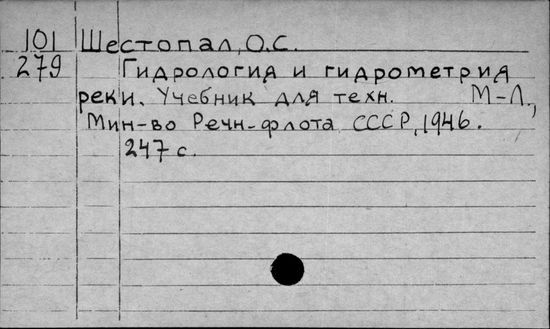 101 Шестопал, О.С.
279 Гидрология и гидрометрия
реки. Учебник для техн. М-Л.,
Мин-во Речн-флота СССР, 1946.
247 с.